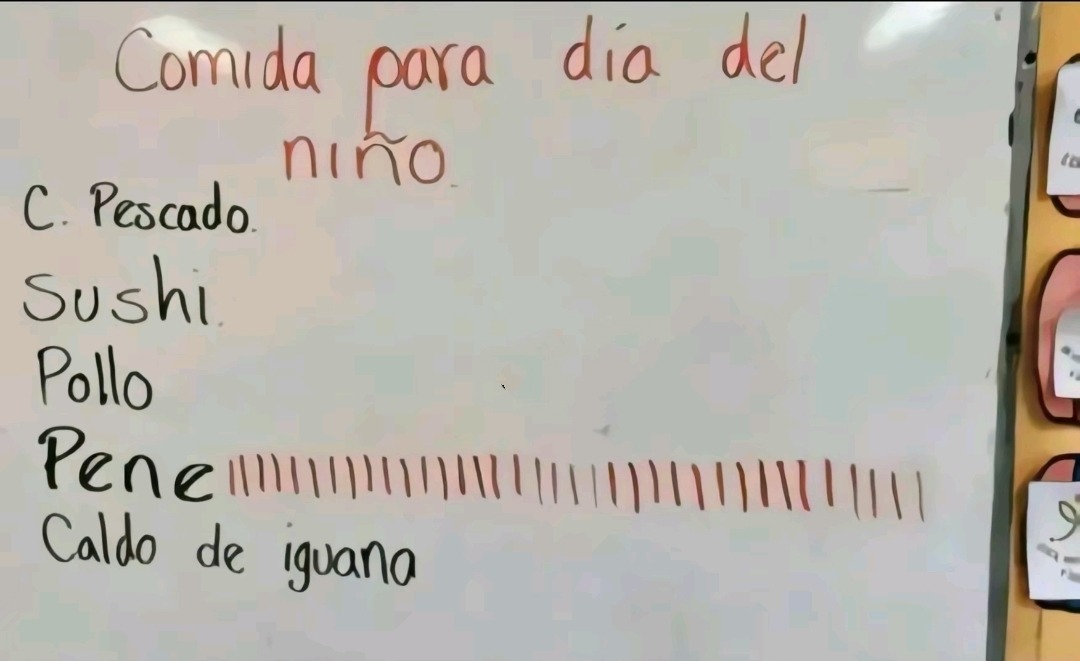 Comida para día del
niño.
C. Pescado.
Sushi.
Pollo
Pene
Caldo de iguana